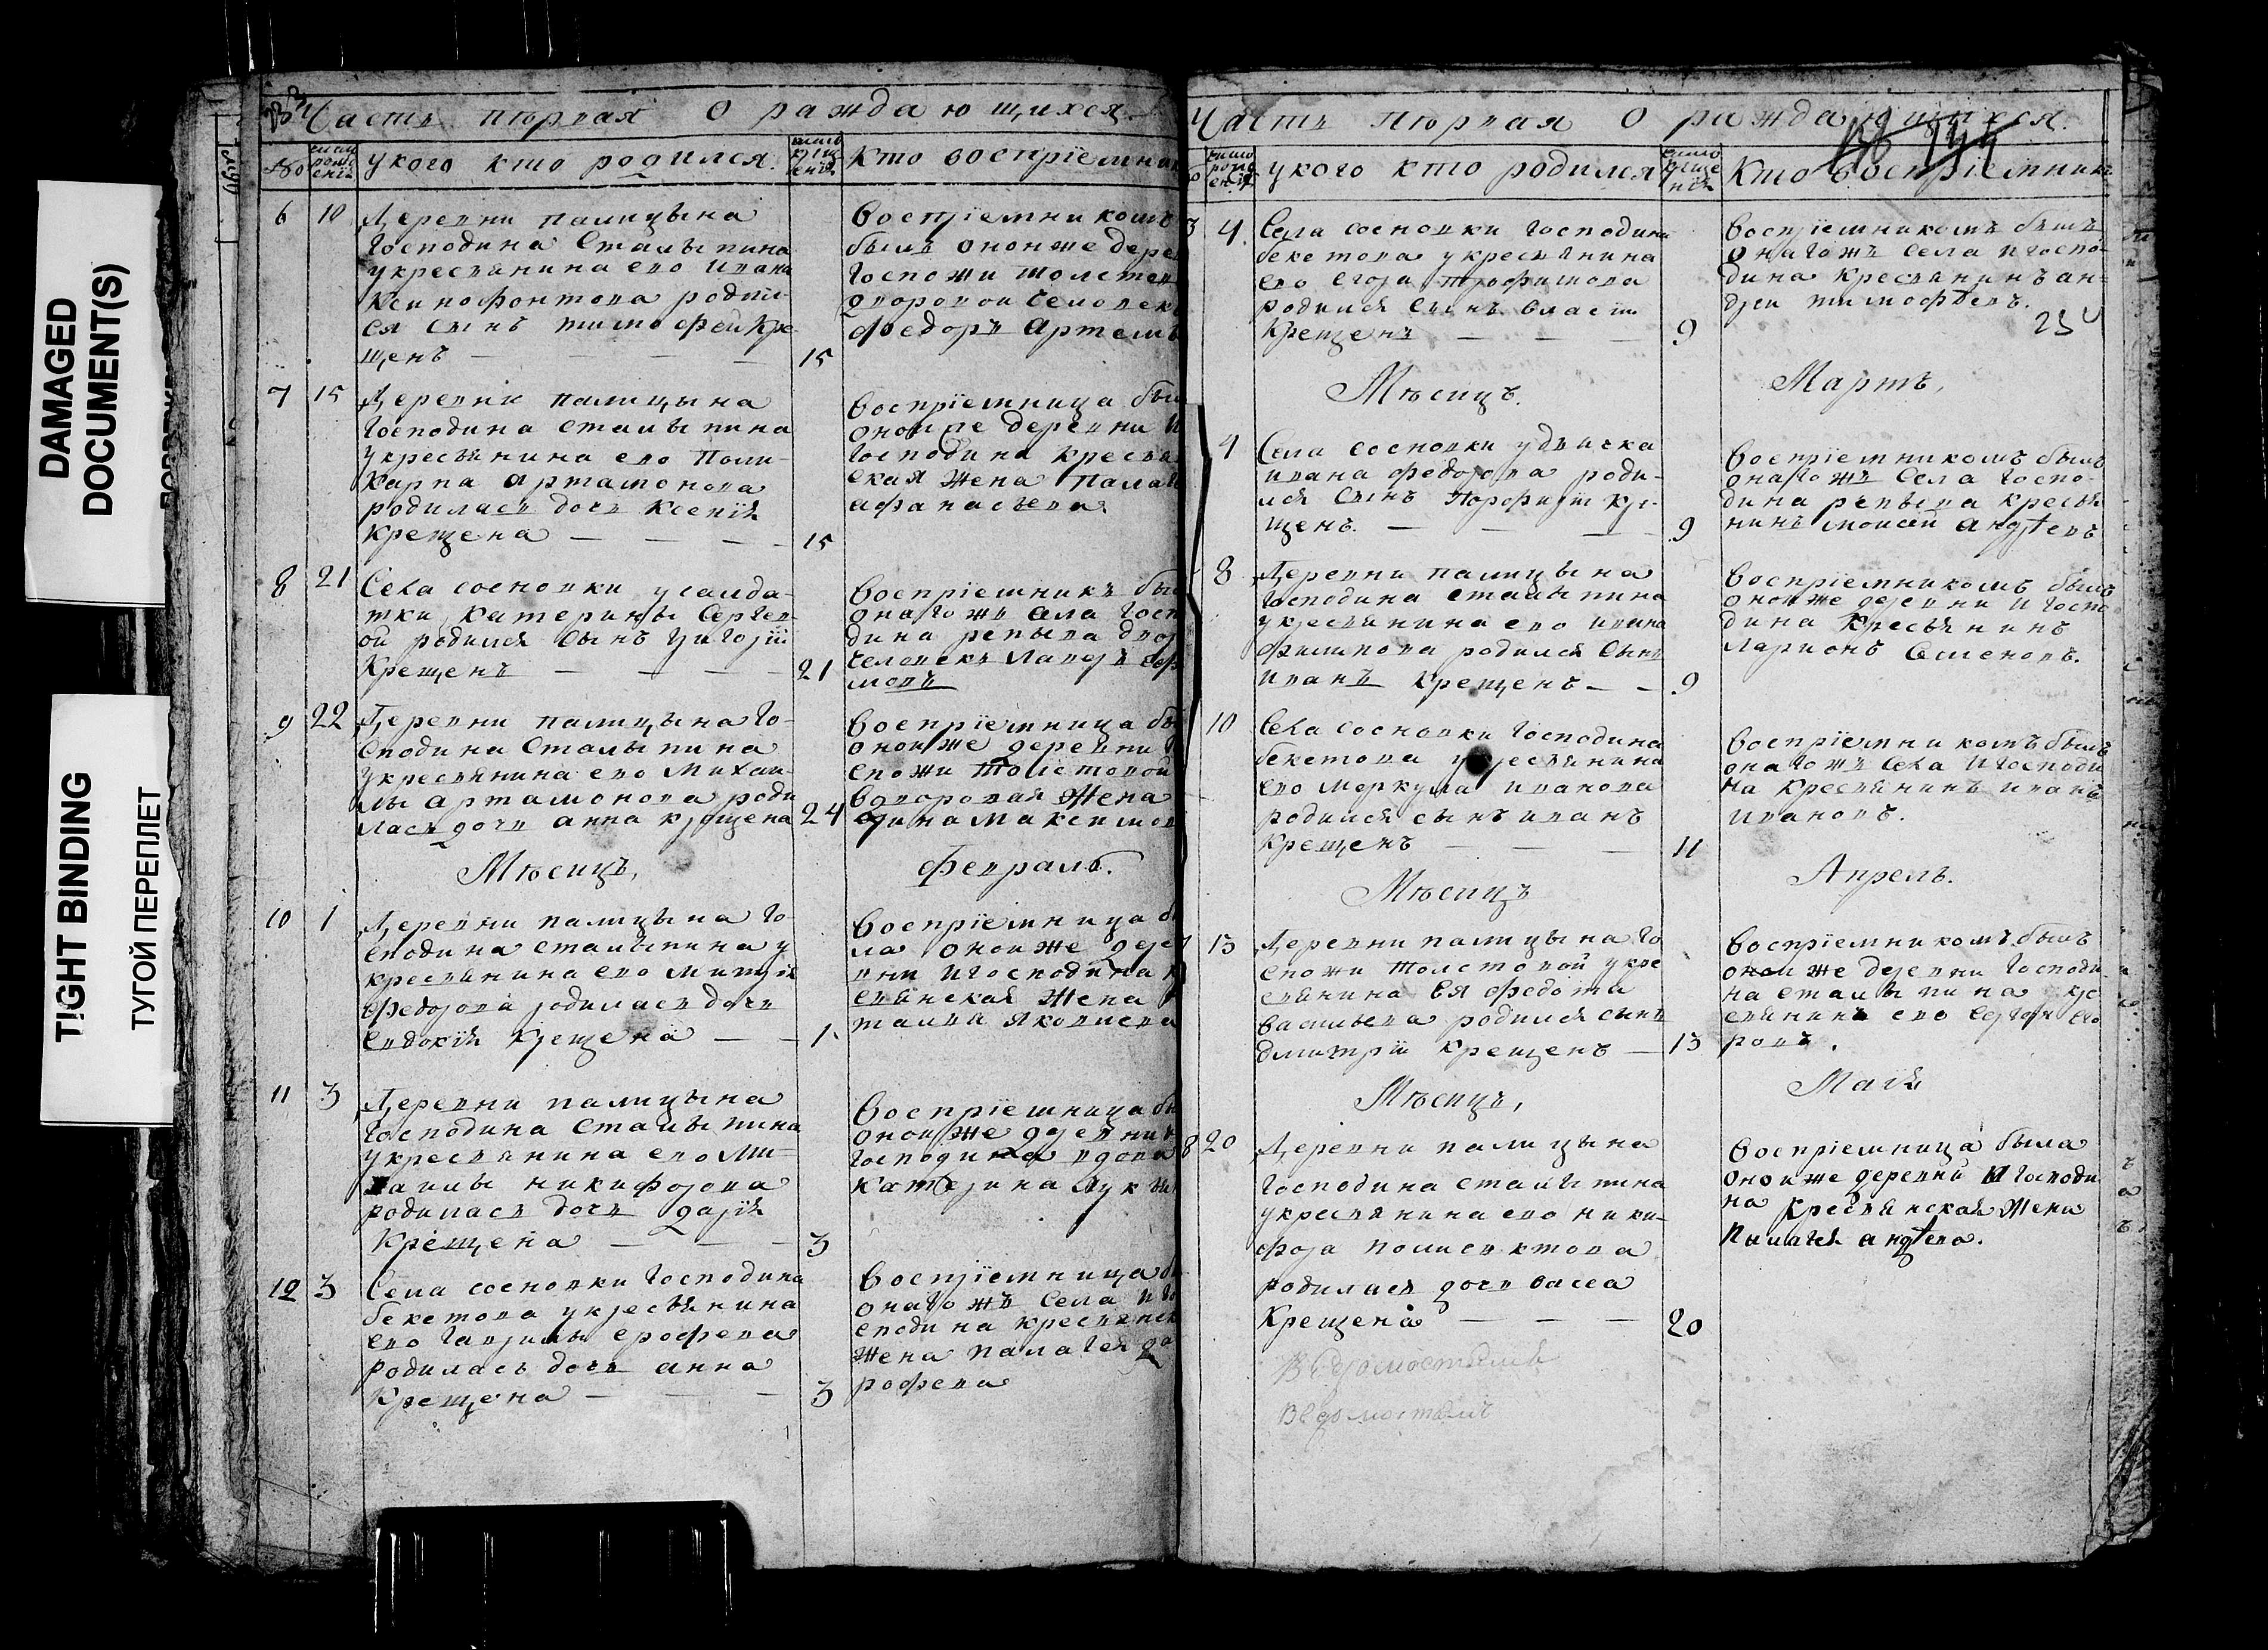 DAMAGED
DOCUMENT(S)
TIGHT BINDING
ТУГОЙ ПЕРЕПЛЕТ
Часть первая О раждающихся
№
у кого кто родился.
кто воспрїемник
6 10 Деревни палицына
Господина Сталыпина
у крестьянина ево Ивана
Ксинофонтова родил
ся сынъ тимофей кре
щенъ 15
Воспрїемникомъ
былъ оной же дере
Госпожи толстов
дворовой человек
федоръ Артемь
7 15 Деревни палицына
Господина Сталыпина
у кресьянина ево Поли
карпа артамонова
родилась дочь Ксенїя
крещена 15
воспрїемница был
оной же деревни и
Господина кресья
ская жена Палаг
афанасьева
8 21 Села сосновки у салда
тки катерины Сергев
ой родился сынъ Григорїй
крещенъ 21
воспрїемникъ был
онаго жъ села Госп
дина репьева двор
человекъ
мовъ
9 22 Деревни палицына Го
сподина Сталыпина
у кресьянина ево Михаи
лы артамонова роди
лась дочь анна крещена 24
воспрїемница бы
оной же деревни
спожи толстовой
дворовая жена
Максимов
Мѣсицъ, февраль.
10 1 Деревни палицына Го
сподина сталыпина у
кресьянина ево Митрїя
федорова родилась дочь
Евдокїя крещена 1.
воспрїемница бы
ла оной же дере
вни и господина к
сьянская жена
Яковлева
11 3 Деревни палицына
Господина Сталыпина
у кресьянина ево Ми
хаилы никифорова
родилась дочь дарїя
крещена 3
воспрїемница бы
оной же деревни и
господина вдова
катерина
12 3 Села сосновки Господина
бекетова у кресьянина
ево Гаврилы ерофеева
родилась дочь анна
крещена 3
воспрїемница бы
онаго жъ села и го
сподина кресьянск
жена палагея до
рофеева
Часть первая О раждающихся.
у кого кто родился
кто воспрїемник
4. Села сосновки Господина
бекетова у кресьянина
ево Егора трофимова
родился сынъ власїй
крещенъ 9
воспрїемникомъ былъ
онаго жъ села и госпо
дина кресьянинъ ан
дрей тимофѣевъ.
Мѣсицъ. Мартъ,
4 Села сосновки у дьячка
ивана федорова роди
лся сынъ Порфирїй кре
щенъ. 9
воспрїемникомъ былъ
онаго жъ села Госпо
дина репьева кресья
нинъ моисей андрѣевъ
8 Деревни палицына
Господина сталыпина
у кресьянина ево ивана
филипова родился сынъ
иванъ крещенъ 9
Воспрїемникомъ былъ
оной же деревни и госпо
дина кресьянинъ
ларионъ Семеновъ.
10 Села сосновки Господина
бекетова у кресьянина
ево меркула иванова
родился сынъ иванъ
крещенъ 11
воспрїемникомъ былъ
онаго жъ села и господи
на кресьянинъ иванъ
ивановъ.
Мѣсицъ Апрель.
13 Деревни палицына Го
спожи толстовой у кре
сьянина Ея федота
васильева родился сынъ
дмитрїй крещенъ 13
воспрїемникомъ былъ
оной же деревни Господи
на сталыпина кре
сьянинъ ево Сергей Его
ровъ.
Мѣсицъ, Маїя
8 20 Деревни палицына
Господина сталыпина
у кресьянина ево ники
фора полиевктова
родилась дочь васса
крещена 20
воспрїемница была
оной же деревни и Господи
на кресьянская жена
андрѣева.
Ведомостямъ
Ведомостямъ